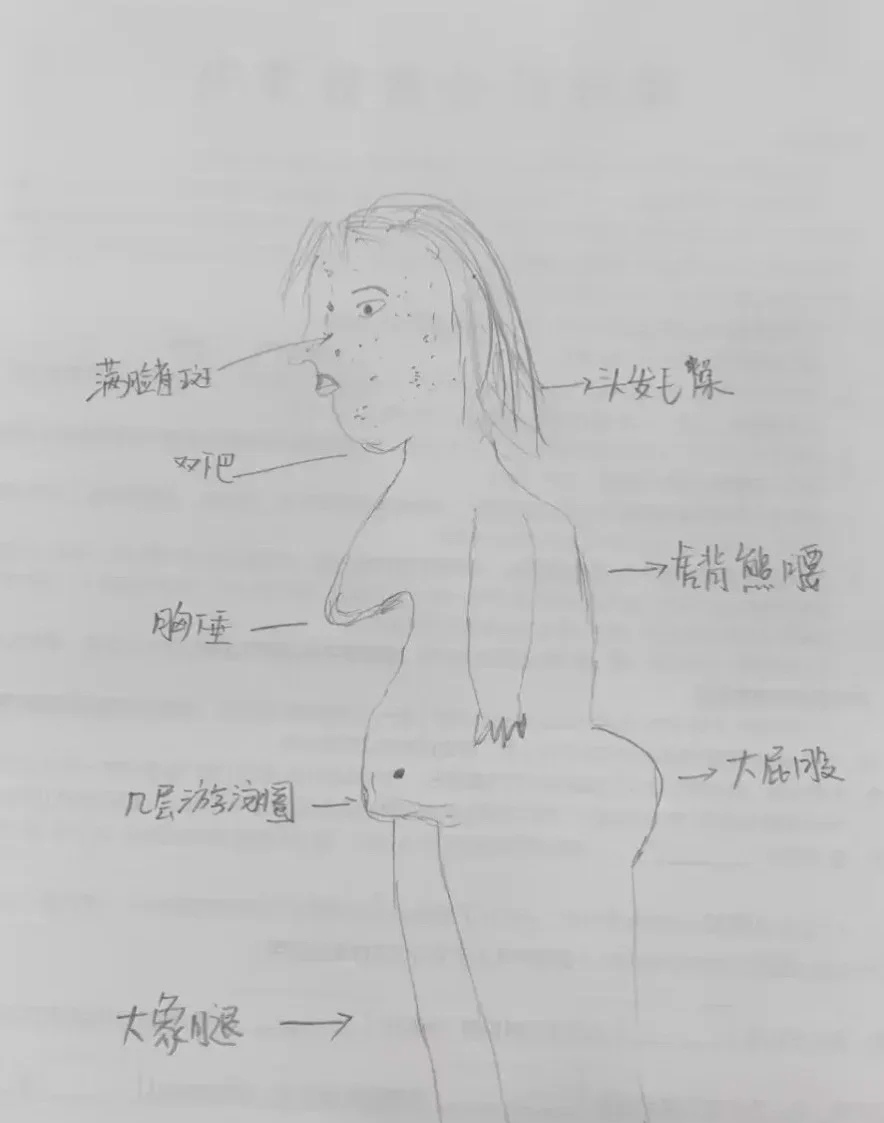 满脸有斑
头发毛燥
双下巴
虎背熊腰
胸下垂
大屁股
几层游泳圈
大象腿